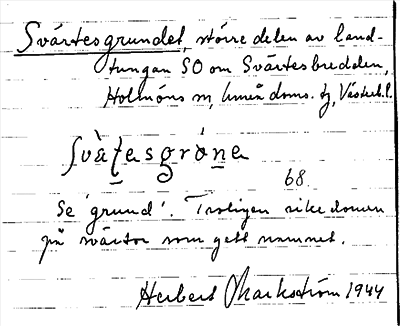 Svärtesgrundet, större delen av land-
tungan SO om Svärtesbredden,
Holmöns sn, Umeå doms. tg, Västerb. l.
68.
Se 'grund'. Troligen rikedomen
på svärtor som gett namnet.
Herbert Markström 1944